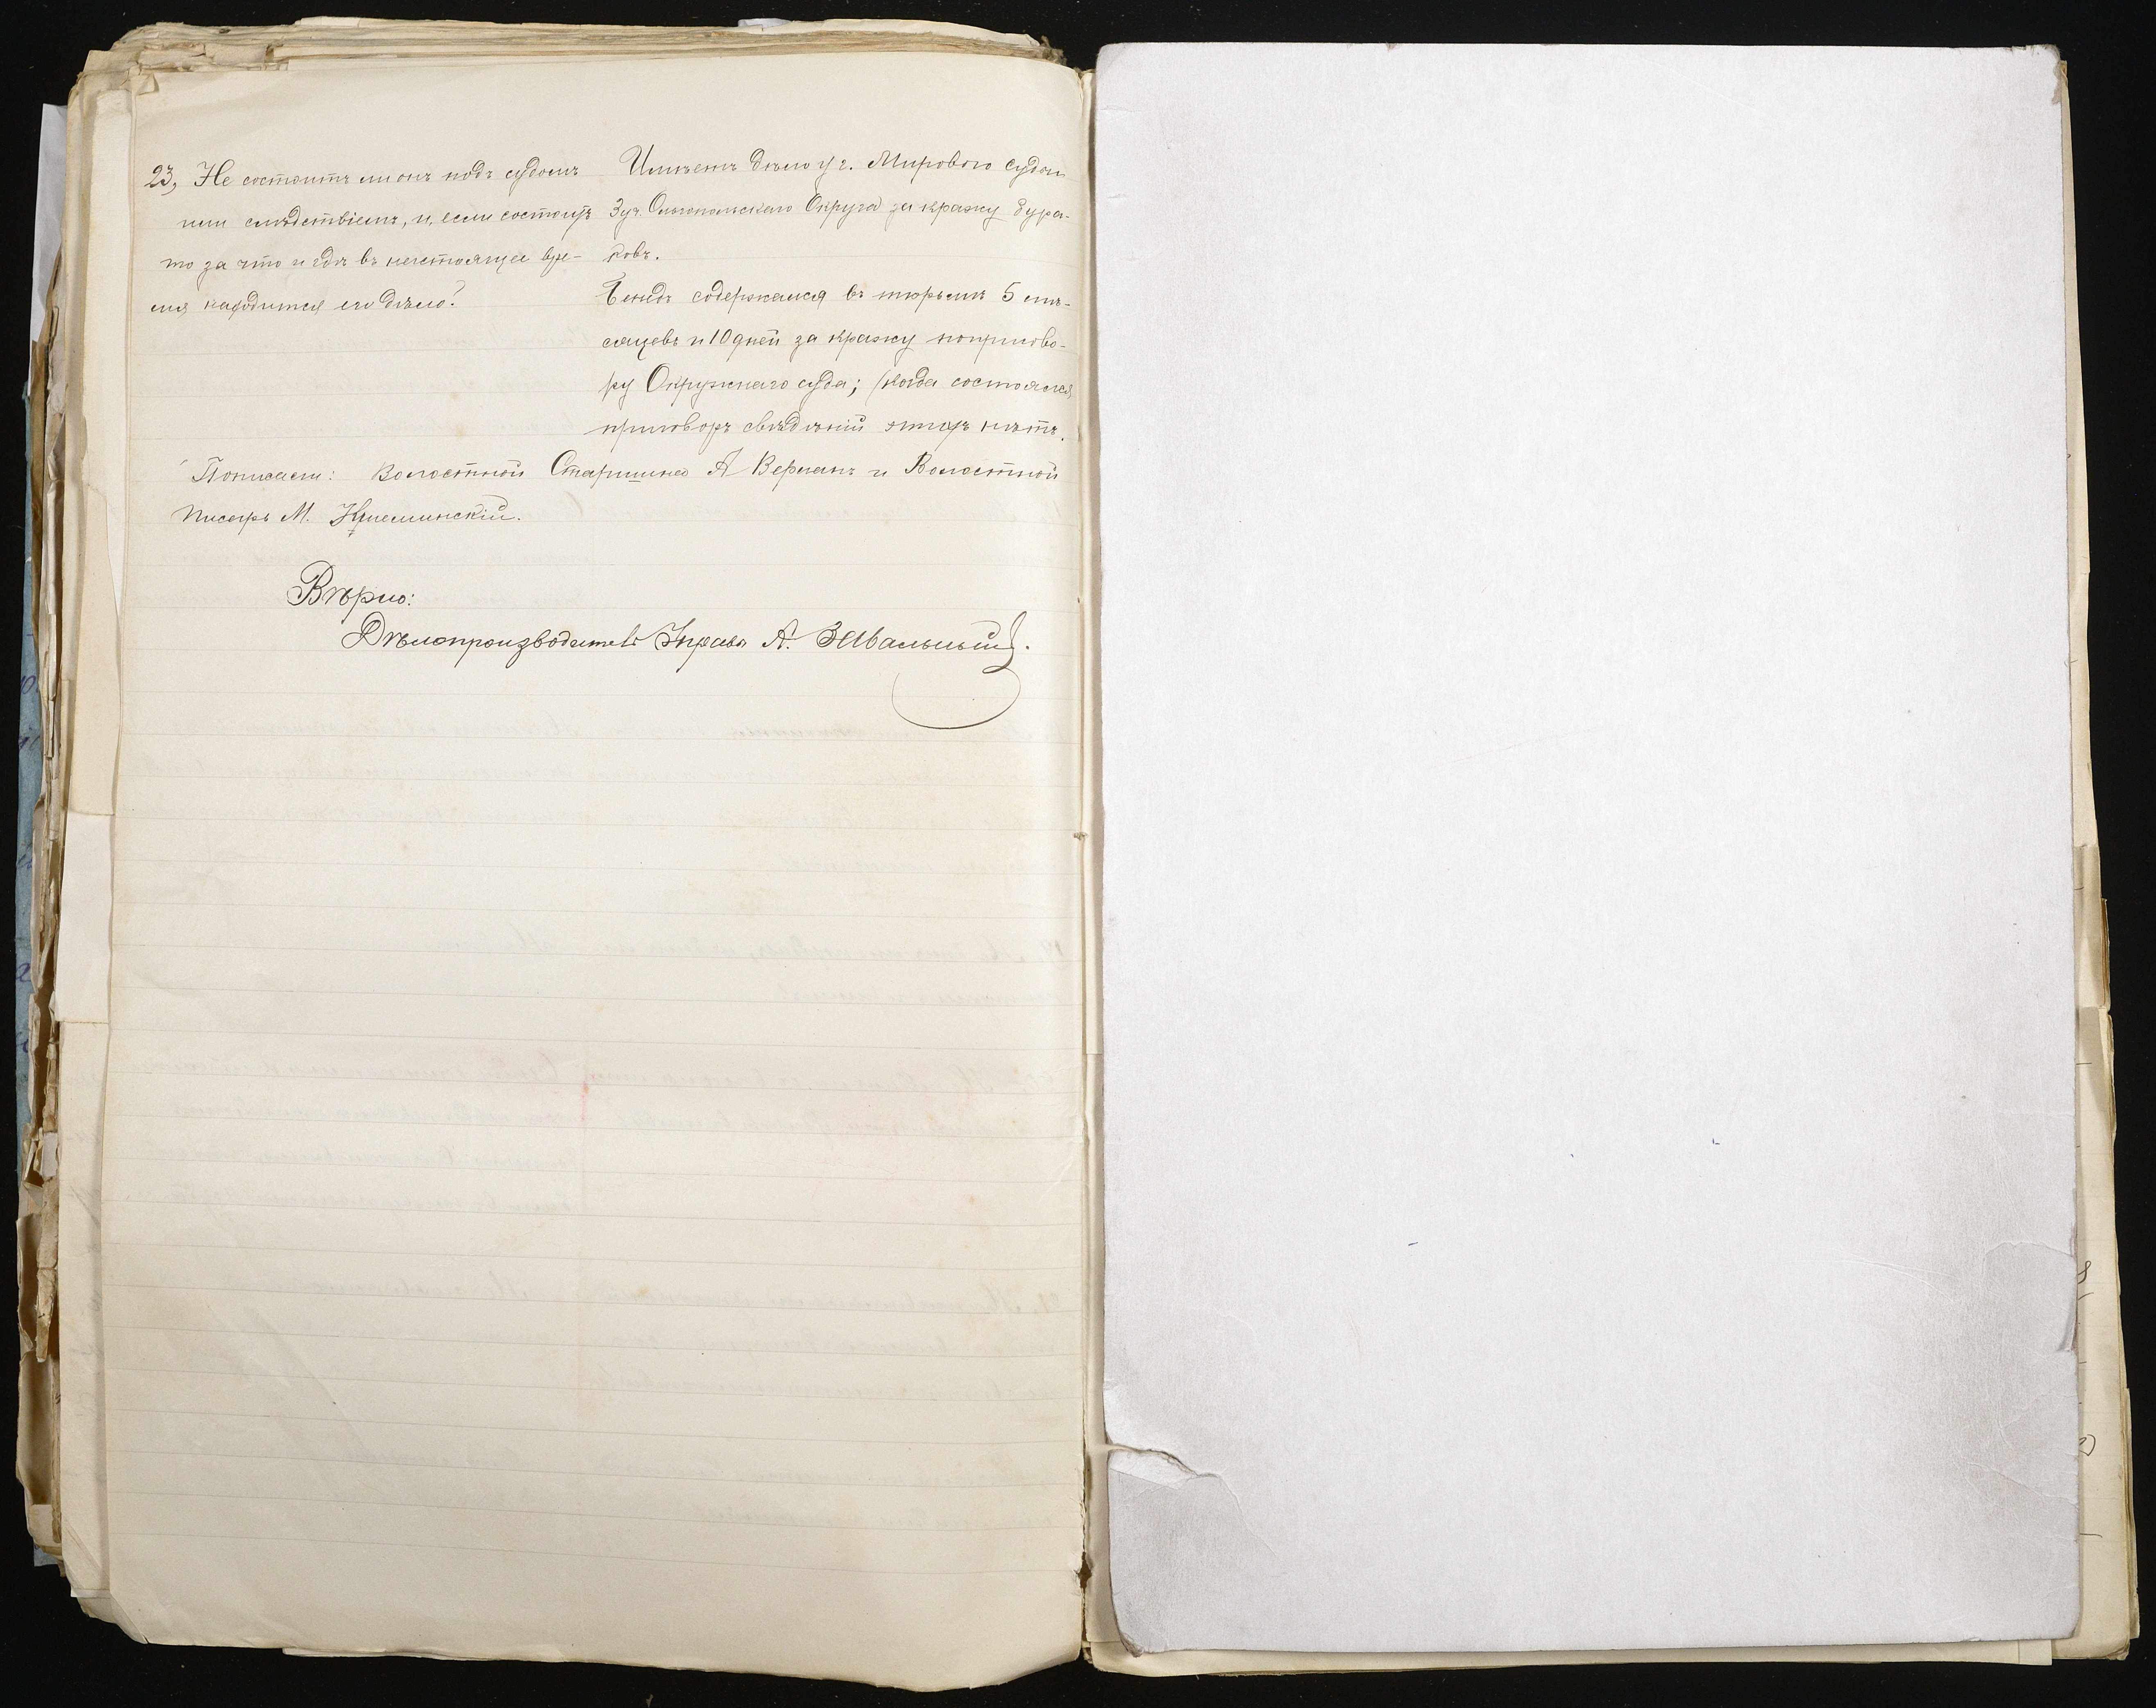 23, Не состоитъ ли онъ подъ судомъ
или слѣдствіемъ, и, если состоитъ
то за что и гдѣ въ настоящее вре-
мя находится его дѣло?
Имѣетъ дѣло у г. Мирового судьи
3 уч. Ольгопольскаго Округа за кражу бура-
ковъ.
содержался въ тюрьмѣ 5 мѣ-
сяцевъ и 10 дней за кражу по приgово-
ру Окружнаго суда; (когда состоялся
приговоръ свѣдѣній нѣтъ.
Пописали: Волостной Старшина А Верланъ и Волостной
писарь М.
Вѣрно:
Дѣлопроизводитель Управы А.